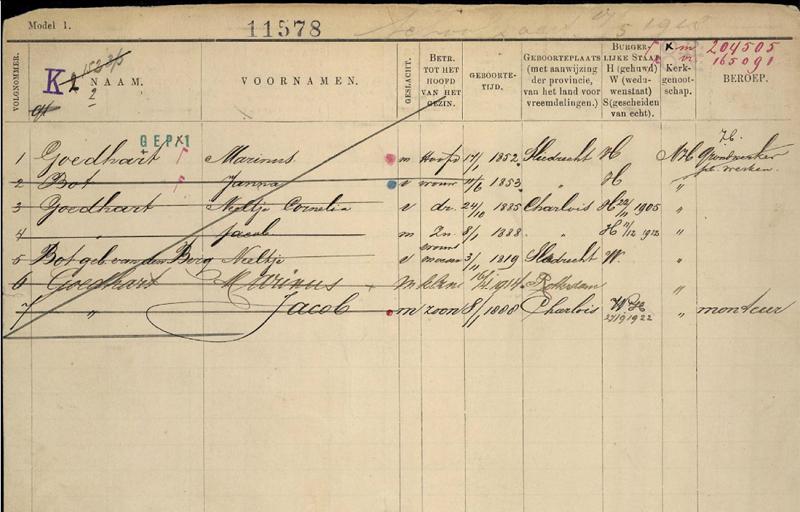 Model 1.
11578
VOLGNOMMER.
K 2
2
NAAM.
VOORNAMEN.
GESLACHT.
BETR. TOT HET HOOFD VAN HET GEZIN.
GEBOORTE-TIJD.
GEBOORTEPLAATS (met aanwijzing der provincie, van het land voor vreemdelingen.)
BURGERLIJKE STAAT H (gehuwd) W (weduwenstaat) S (gescheiden van echt).
Kerkgenootschap.
m 204505
v. 165090
BEROEP.
GEPK1
1 Goedhart Marinus m Hoofd 17/1 1852 Sliedrecht H NH Grondwerker
2 Bot Janna v vrouw 11/6 1853 " H "
3 Goedhart Neeltje Cornelia v dr. 24/10 1885 Charlois H 22/11 1905 "
4 " Jacob m Zn 8/1 1888 " H 11/12 1912 "
5 Bot geb. van den Berg Neeltje v moeder 3/11 1819 Sliedrecht W. "
6 Goedhart Marinus m 1914 Rotterdam "
7 " Jacob m zoon 8/1 1888 Charlois W. 27/9 1922 " monteur